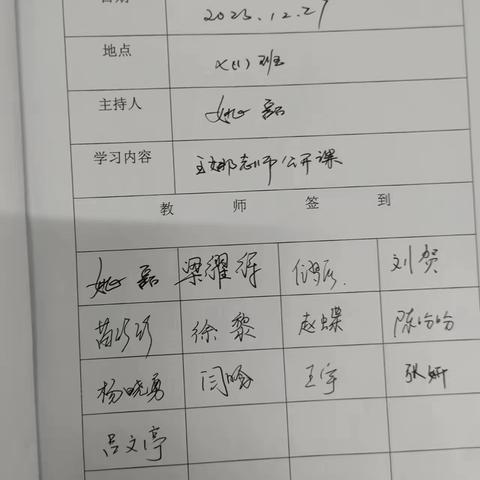 日期 2023.12.27
地点 七(1)班
主持人 姚磊
学习内容 王娜老师公开课
教 师 签 到
姚磊 梁耀辉 刘贺
苗珍珍 徐黎 赵蝶 陈哈哈
杨晓勇 闫晗 王宇 张妍
吕文亭